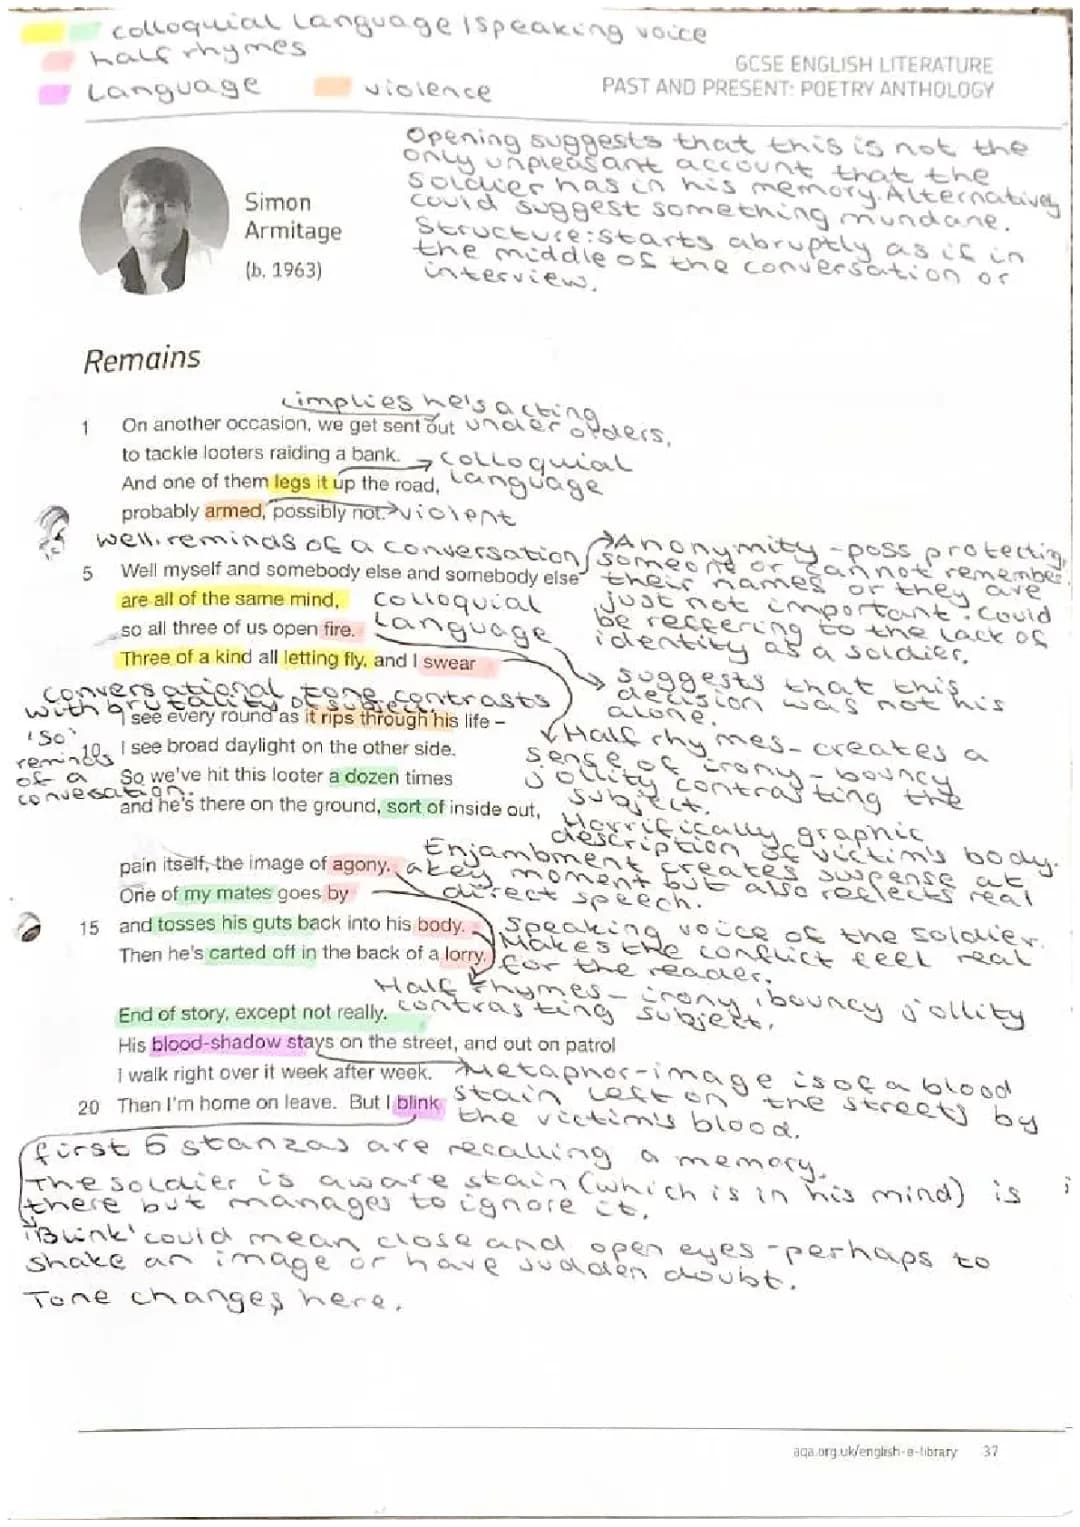 colloquial language / speaking voice
half rhymes
Language violence
GCSE ENGLISH LITERATURE
PAST AND PRESENT: POETRY ANTHOLOGY
Opening suggests that this is not the
only unpleasant account that the
soldier has in his memory. Alternatively
could suggest something mundane.
Structure: starts abruptly as if in
the middle of the conversation or
interview.
Simon
Armitage
(b. 1963)
Remains
implies he's acting
under orders.
1 On another occasion, we get sent out
to tackle looters raiding a bank.
colloquial
language
And one of them legs it up the road,
probably armed, possibly not.
violent
well. reminds of a conversation
Anonymity - poss protecting
someone or cannot remember
their names or they are
just not important. Could
be reffering to the lack of
identity as a soldier.
5 Well myself and somebody else and somebody else
are all of the same mind,
colloquial
language
so all three of us open fire.
Three of a kind all letting fly, and I swear
suggests that this
decision was not his
alone.
conversational tone contrasts
with brutality of subject.
I see every round as it rips through his life –
Half rhymes - creates a
sense of irony - bouncy
jollity contrasting the
subject.
'So'
reminds
of a
convesation.
10 I see broad daylight on the other side.
So we've hit this looter a dozen times
and he's there on the ground, sort of inside out,
Horrifically graphic
description of victim's body.
Enjambment creates suspense at
a key moment but also reflects real
direct speech.
pain itself, the image of agony.
One of my mates goes by
15 and tosses his guts back into his body.
Then he's carted off in the back of a lorry.
Speaking voice of the soldier.
Makes the conflict feel real
for the reader.
Half rhymes - irony, bouncy jollity
contrasting subject.
End of story, except not really.
His blood-shadow stays on the street, and out on patrol
I walk right over it week after week.
20 Then I'm home on leave. But I blink
Metaphor - image is of a blood
stain left on the streets by
the victim's blood.
first 5 stanzas are recalling a memory.
The soldier is aware stain (which is in his mind) is
there but manages to ignore it.
'Blink' could mean close and open eyes - perhaps to
shake an image or have sudden doubt.
Tone changes here.
aqa.org.uk/english-e-library 37